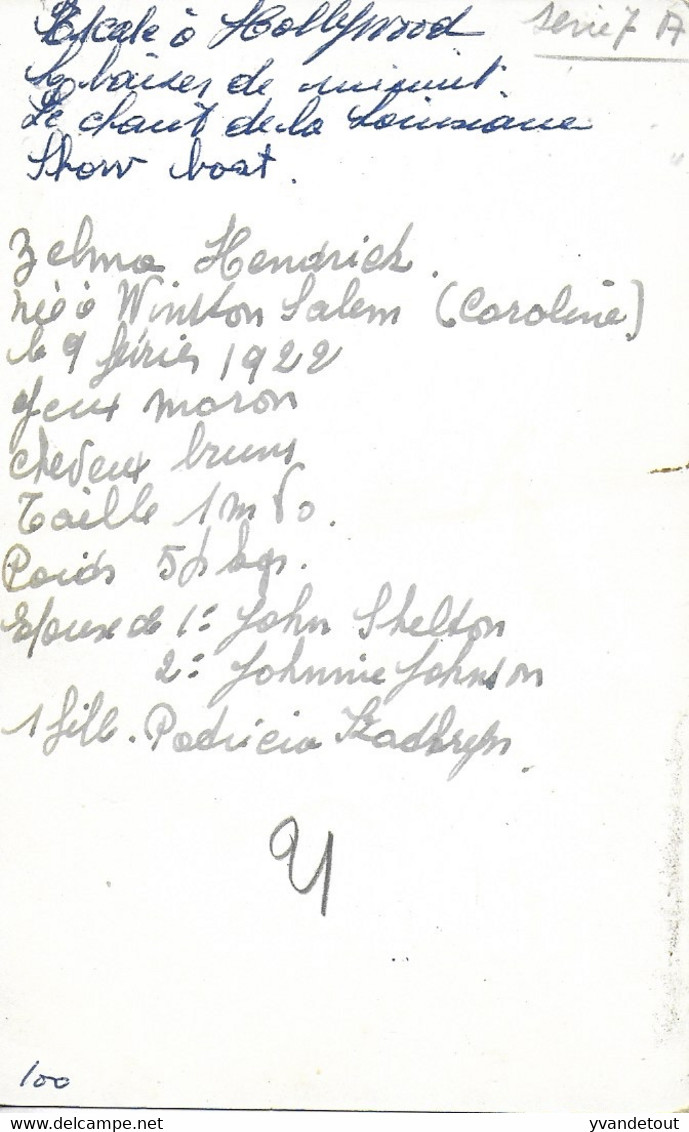 Escale à Hollywood
série 7 A
le baiser de minuit.
Le chant de la Louisiane
Show boat.
Zelma Hendrick.
née à Winston Salem (Caroline)
le 9 février 1922
yeux maron
cheveux bruns
Taille 1m
Poids kgs.
Epouse de 1: John Shelton
2: Johnnie Johnson
1 fille. Patricia Kathryn.
100
yvandetout